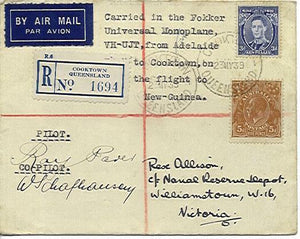 BY AIR MAIL
PAR AVION
Carried in the Fokker
Universal Monoplane,
VH-UJT, from Adelaide
to Cooktown, on
the flight to
New-Guinea.
R.6
COOKTOWN
QUEENSLAND
R No 1694
QUEENSLAND
PILOT.
CO-PILOT.
Rex Allison,
c/o Naval Reserve Depot,
Williamstown, W.16,
Victoria.
3D
5D